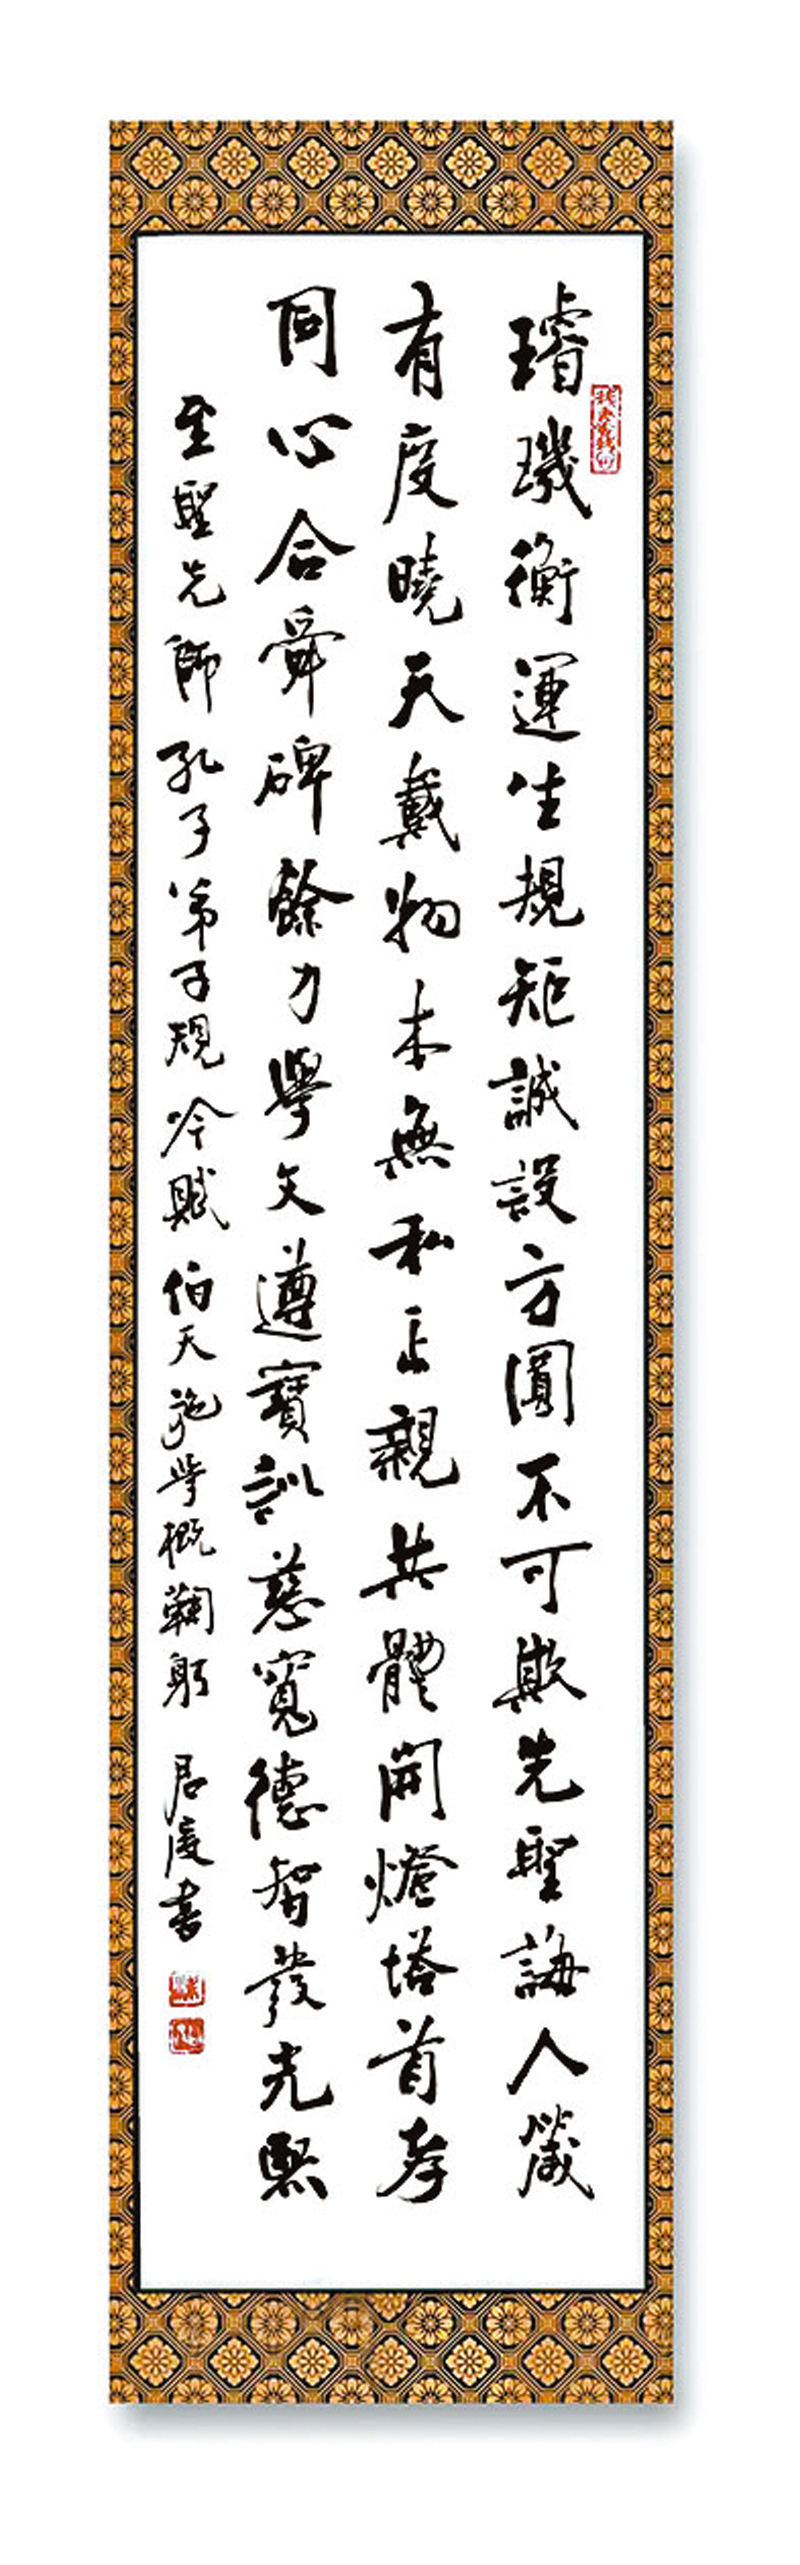 璿璣衡運生規矩誠設方圓不可欺先聖誨人箴
有度曉天戴物本無私正親共體開燈塔首孝
同心合舜碑餘力學文遵寶訓慈寬德智發光熙
至聖先師孔子弟子規冷賦伯天施學概鞠躬 君度書